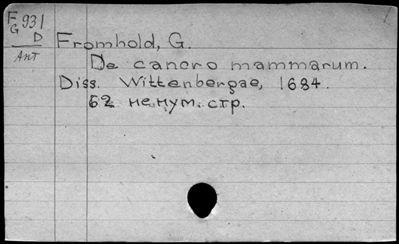 F 931
G D
Ант
Fromhold, G.
De cancro mammarum.
Diss. Wittenbergae, 1684.
62 ненум. стр.